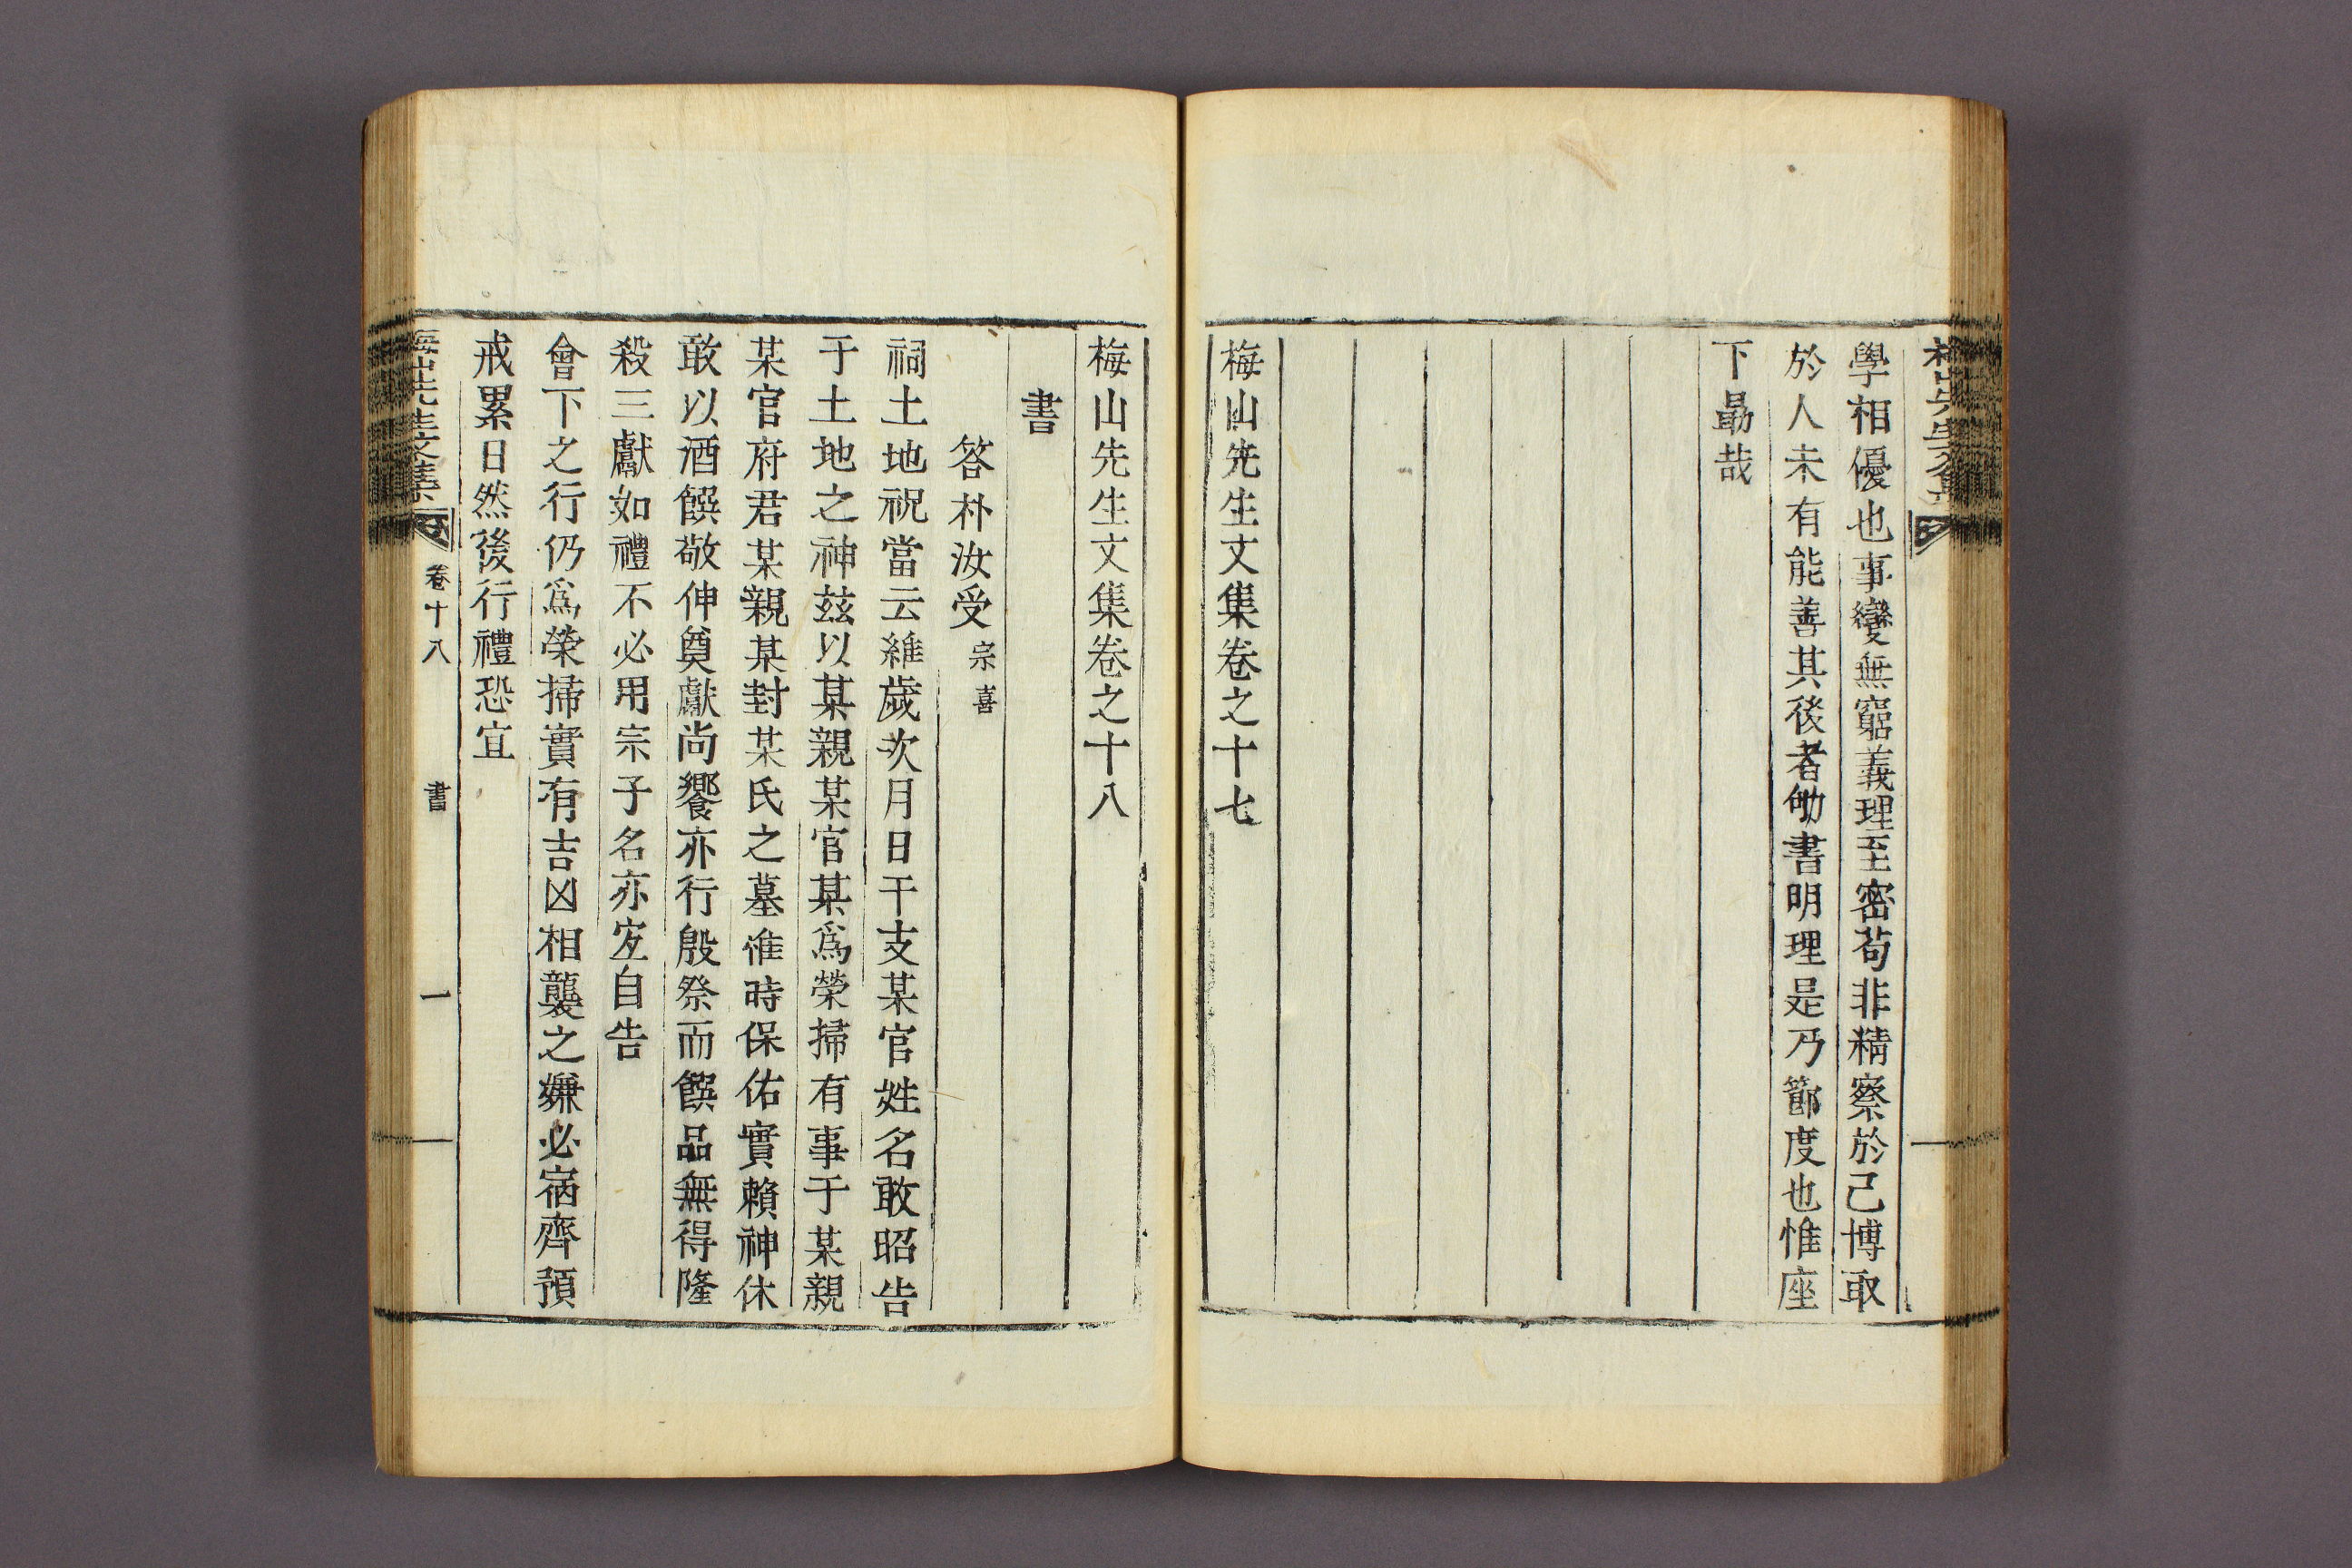 學相優也事變無窮義理至密苟非精察於己博取
於人未有能善其後者劬書明理是乃節度也惟座
下勗哉
梅山先生文集卷之十七
梅山先生文集卷之十八
書
答朴汝受宗喜
祠土地祝當云維歲次月日干支某官姓名敢昭告
于土地之神玆以某親某官某爲榮掃有事于某親
某官府君某親某封某氏之墓惟時保佑實賴神休
敢以酒饌敬伸奠獻尚饗亦行殷祭而饌品無得隆
殺三獻如禮不必用宗子名亦宐自告
會下之行仍爲榮掃實有吉凶相襲之嫌必宿齊預
戒累日然後行禮恐宜
梅山先生文集 卷十八 書 一